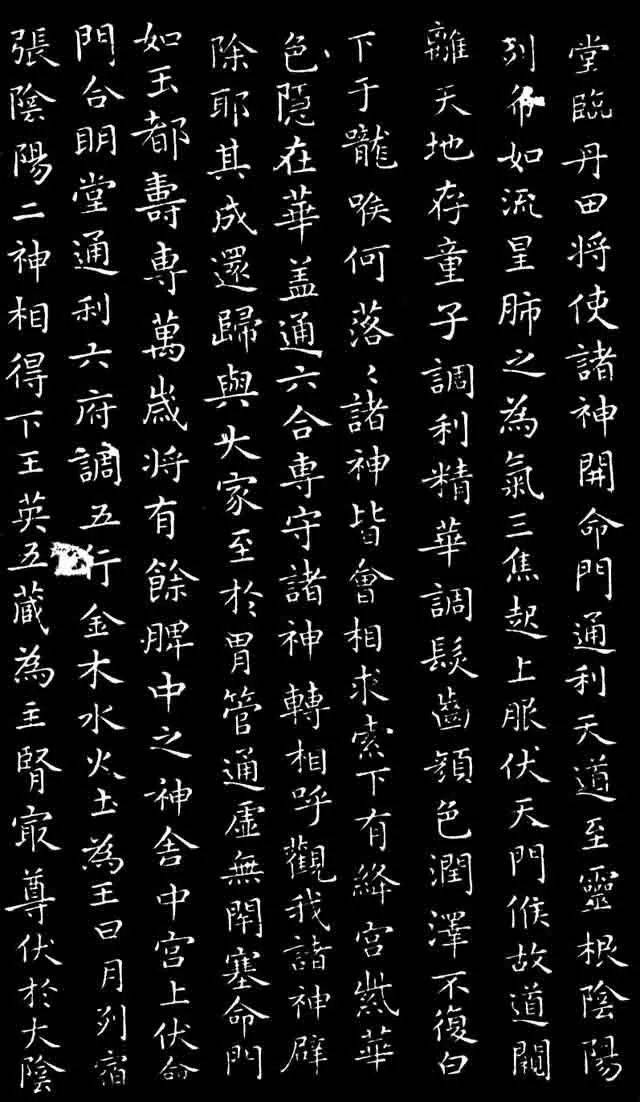 堂臨丹田将使諸神開命門通利天道至靈根陰陽
列布如流星肺之為氣三焦起上服伏天門候故道闚
離天地存童子調利精華調髮齒顔色潤澤不復白
下于嚨喉何落〻諸神皆會相求索下有絳宮紫華
色隱在華盖通六合専守諸神轉相呼觀我諸神辟
除耶其成還歸與大家至於胃管通虛無閉塞命門
如玉都壽専萬歲将有餘脾中之神舍中宮上伏命
門合明堂通利六府調五行金木水火土為王日月列宿
張陰陽二神相得下王英五藏為主腎㝡尊伏於大陰